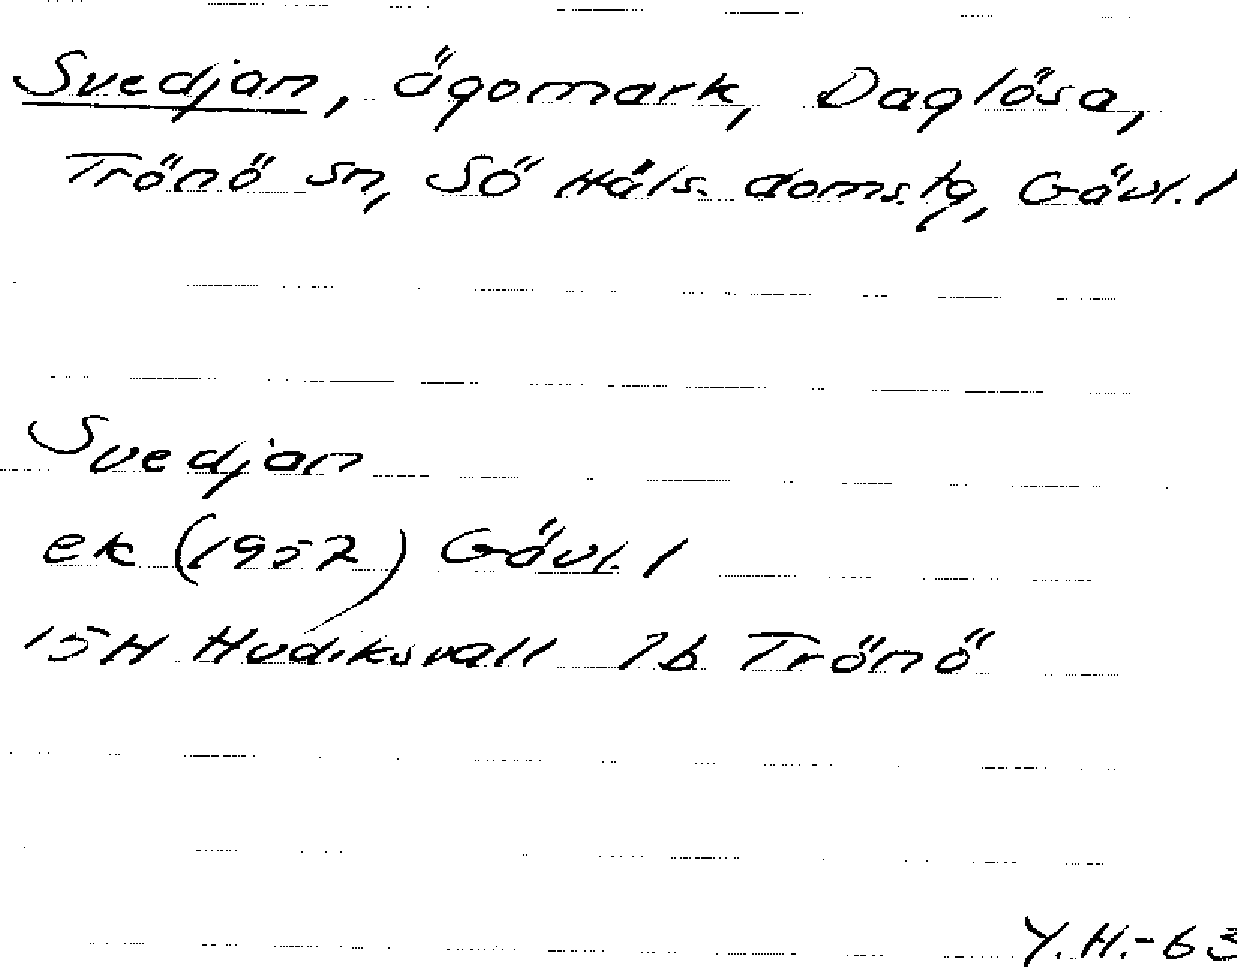 Svedjan, ägomark, Daglösa,
Trönö sn, Sö Häls. doms.tg, Gävl.l
Svedjan
ek (1957) Gävl.l
15H Hudiksvall 7b Trönö
Y.H.-63